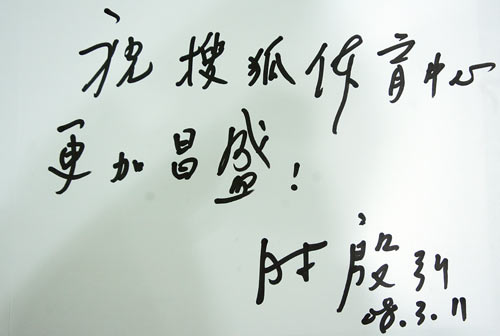 祝搜狐体育中心
更加昌盛!
08.3.11